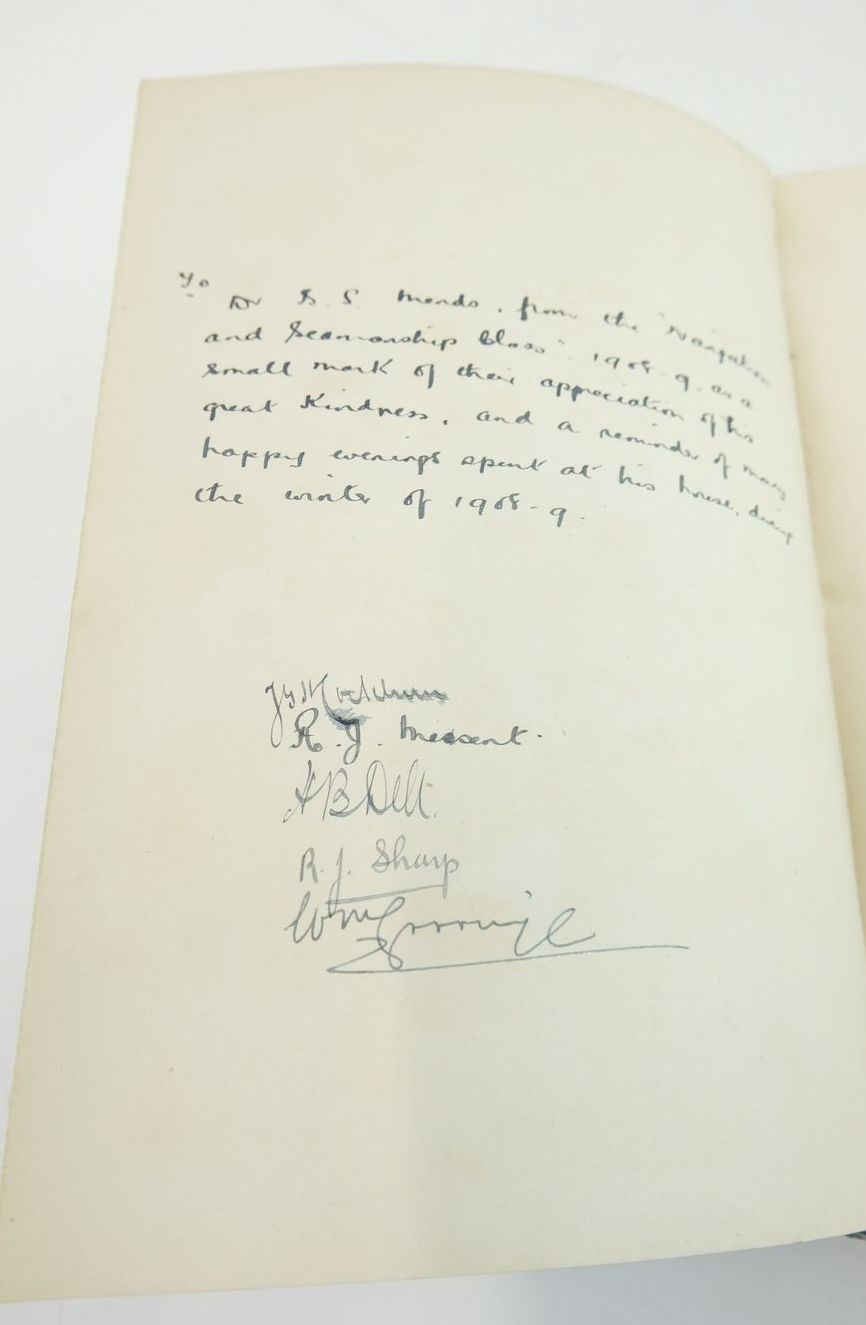 To
Dr S. S. Mends, from the "Navigation
and Seamanship Class". 1908-9. as a
small mark of their appreciation of his
great kindness, and a reminder of many
happy evenings spent at his house, during
the winter of 1908-9.
R. J. Messent.
H B Dell.
R. J. Sharp
Wm